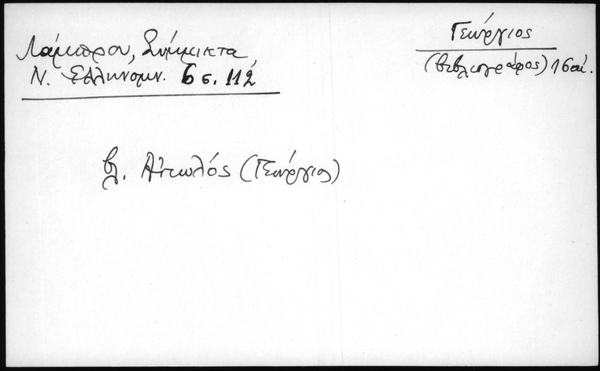 Λάμπρου, Σύμμικτα
Ν. Ελληνομν. 6 σ. 112
Γεώργιος
(βιβλιογράφος) 16 αι.
βλ. Αἰτωλός (Γεώργιος)